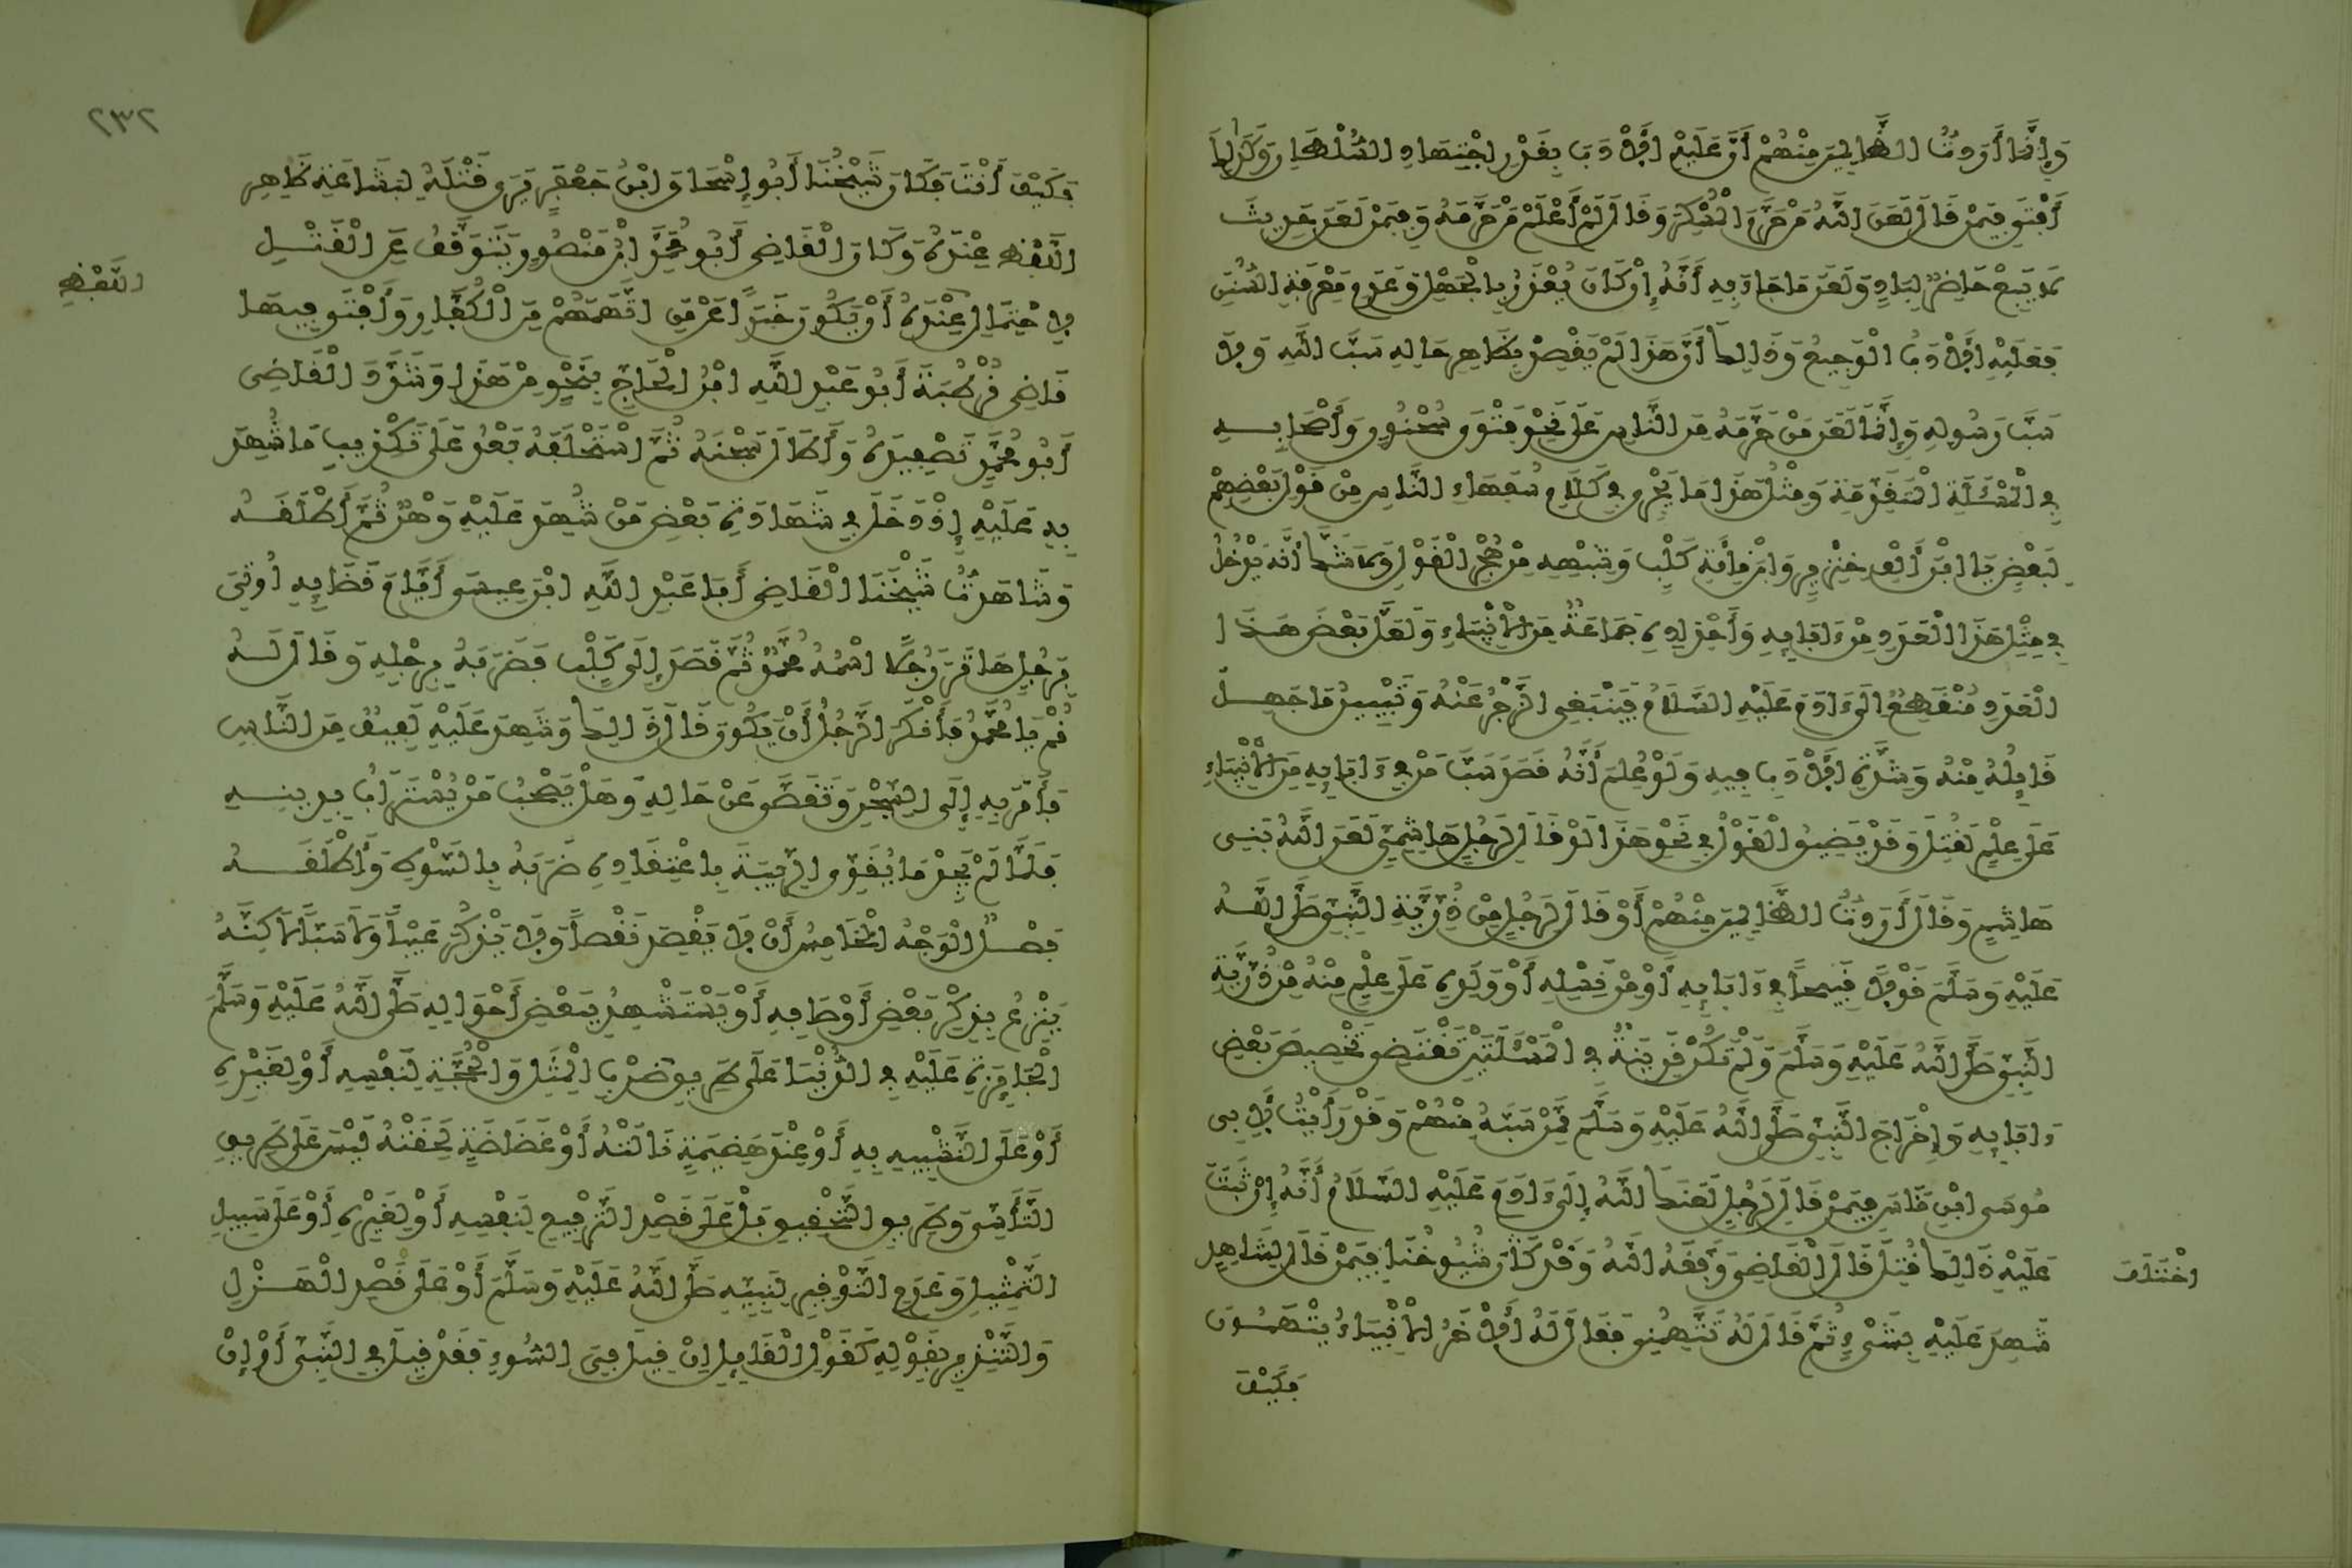 وَإِنَّمَا أَرَدتُّ الظَّالِمِينَ مِنْهُمْ أَنَّ عَلَيْهِ الْأَدَبَ بِقَدْرِ اجْتِهَادِ السُّلْطَانِ وَكَذَلِكَ
أَفْتَى فِيمَنْ قَالَ لَعَنَ اللَّهُ مَنْ حَرَّمَ الْمُسْكِرَ وَقَالَ لَمْ أَعْلَمْ مَنْ حَرَّمَهُ وَفِيمَنْ لَعَنَ حَدِيثَ
لَا يَبِعْ حَاضِرٌ لِبَادٍ وَلَعَنَ مَا جَاءَ بِهِ أَنَّهُ إِنْ كَانَ يُعْذَرُ بِالْجَهْلِ وَعَدَمِ مَعْرِفَةِ السُّنَنِ
فَعَلَيْهِ الْأَدَبُ الْوَجِيعُ وَذَلِكَ أَنَّ هَذَا لَمْ يَقْصِدْ بِظَاهِرِ حَالِهِ سَبَّ اللَّهِ وَلَا
سَبَّ رَسُولِهِ وَإِنَّمَا لَعَنَ مَنْ حَرَّمَهُ مِنَ النَّاسِ عَلَى نَحْوِ فَتْوَى سُحْنُونٍ وَأَصْحَابِهِ
فِي الْمَسْئَلَةِ الْمُتَقَدِّمَةِ وَمِثْلُ هَذَا مَا يَجْرِي فِي كَلَامِ سُفَهَاءِ النَّاسِ مِنْ قَوْلِ بَعْضِهِمْ
لِبَعْضٍ يَا ابْنَ أَلْفِ خِنْزِيرٍ وَابْنَ مِائَةِ كَلْبٍ وَشِبْهِهِ مِنْ هُجْرِ الْقَوْلِ وَلَا شَكَّ أَنَّهُ يَدْخُلُ
فِي مِثْلِ هَذَا الْعَدَدِ مِنْ ءَابَائِهِ وَأَجْدَادِهِ جَمَاعَةٌ مِنَ الْأَنْبِيَاءِ وَلَعَلَّ بَعْضَ هَذَا
الْعَدَدِ مُنْقَطِعٌ إِلَى ءَادَمَ عَلَيْهِ السَّلَامُ فَيَنْبَغِي الزَّجْرُ عَنْهُ وَتَبْيِينُ مَا جَهِلَ
قَائِلُهُ مِنْهُ وَشِدَّةُ الْأَدَبِ فِيهِ وَلَوْ عُلِمَ أَنَّهُ قَصَدَ سَبَّ مَنْ فِي ءَابَائِهِ مِنَ الْأَنْبِيَاءِ
عَلَى عِلْمٍ لَقُتِلَ وَقَدْ يُضَيَّقُ الْقَوْلُ فِي نَحْوِ هَذَا لَوْ قَالَ لِرَجُلٍ هَاشِمِيٍّ لَعَنَ اللَّهُ بَنِي
هَاشِمٍ وَقَالَ أَرَدتُّ الظَّالِمِينَ مِنْهُمْ أَوْ قَالَ لِرَجُلٍ مِنْ ذُرِّيَّةِ النَّبِيِّ صَلَّى اللَّهُ
عَلَيْهِ وَسَلَّمَ قَوْلًا قَبِيحًا فِي ءَابَائِهِ أَوْ مِنْ نَسْلِهِ أَوْ وَلَدِهِ عَلَى عِلْمٍ مِنْهُ مِنْ ذُرِّيَّةِ
النَّبِيِّ صَلَّى اللَّهُ عَلَيْهِ وَسَلَّمَ وَلَمْ تَكُنْ قَرِينَةٌ فِي الْمَسْئَلَتَيْنِ تَقْتَضِي تَخْصِيصَ بَعْضِ
ءَابَائِهِ وَإِخْرَاجَ النَّبِيِّ صَلَّى اللَّهُ عَلَيْهِ وَسَلَّمَ مِمَّنْ سَبَّهُ مِنْهُمْ وَقَدْ رَأَيْتُ لِأَبِي
مُوسَى ابْنِ مَنَاسٍ فِيمَنْ قَالَ لِرَجُلٍ لَعَنَكَ اللَّهُ إِلَى ءَادَمَ عَلَيْهِ السَّلَامُ أَنَّهُ إِنْ ثَبَتَ
عَلَيْهِ ذَلِكَ قُتِلَ قَالَ الْقَاضِي وَفَّقَهُ اللَّهُ وَقَدْ كَانَ شُيُوخُنَا فِيمَنْ قَالَ لِشَاهِدٍ
اخْتَلَفَ
شَهِدَ عَلَيْهِ بِشَيْءٍ ثُمَّ قَالَ لَهُ تَتَّهِمُنِي فَقَالَ لَهُ الْآخَرُ الْأَنْبِيَاءُ يُتَّهَمُونَ
فَكَيْفَ
٢٣٢
فَكَيْفَ أَنْتَ فَكَانَ شَيْخُنَا أَبُو إِسْحَاقَ ابْنُ جَعْفَرٍ يَرَى قَتْلَهُ لِبَشَاعَةِ ظَاهِرِ
اللَّفْظِ عِنْدَهُ وَكَانَ الْقَاضِي أَبُو مُحَمَّدٍ ابْنُ مَنْصُورٍ يَتَوَقَّفُ عَنِ الْقَتْلِ
اللَّفْظِ
لِاحْتِمَالٍ عِنْدَهُ أَنْ يَكُونَ خَبَرًا عَمَّنِ اتَّهَمَهُمْ مِنَ الْكُفَّارِ وَأَفْتَى فِيهَا
قَاضِي قُرْطُبَةَ أَبُو عَبْدِ اللَّهِ ابْنُ الْحَاجِّ بِنَحْوٍ مِنْ هَذَا وَشَدَّدَ الْقَاضِي
أَبُو مُحَمَّدٍ تَصْفِيدَهُ وَأَطَالَ سَجْنَهُ ثُمَّ اسْتَحْلَفَهُ بَعْدُ عَلَى تَكْذِيبِ مَا شُهِدَ
بِهِ عَلَيْهِ إِذْ دَخَلَ فِي شَهَادَةِ بَعْضِ مَنْ شَهِدَ عَلَيْهِ وَهْنٌ ثُمَّ أَطْلَقَهُ
وَشَاهَدتُّ شَيْخَنَا الْقَاضِي أَبَا عَبْدِ اللَّهِ ابْنَ عِيسَى أَيَّامَ قَضَائِهِ أُوتِيَ
بِرَجُلٍ هَاتَرَ رَجُلًا اسْمُهُ مُحَمَّدٌ ثُمَّ قَصَدَ إِلَى كَلْبٍ فَضَرَبَهُ بِرِجْلِهِ وَقَالَ لَهُ
قُمْ يَا مُحَمَّدُ فَأَنْكَرَ الرَّجُلُ أَنْ يَكُونَ قَالَ ذَلِكَ وَشَهِدَ عَلَيْهِ لَفِيفٌ مِنَ النَّاسِ
فَأَمَرَ بِهِ إِلَى السِّجْنِ وَتَقَصَّى عَنْ حَالِهِ وَهَلْ يَصْحَبُ مَنْ يُسْتَرَابُ بِدِينِهِ
فَلَمَّا لَمْ يَجِدْ مَا يُقَوِّي الرِّيبَةَ بِاعْتِقَادِهِ ضَرَبَهُ بِالسَّوْطِ وَأَطْلَقَهُ
فَصْلٌ الْوَجْهُ الْخَامِسُ أَنْ لَا يَقْصِدَ نَقْصًا وَلَا يَذْكُرَ عَيْبًا وَلَا سَبًّا لَكِنَّهُ
يَنْزِعُ بِذِكْرِ بَعْضِ أَوْصَافِهِ أَوْ يَسْتَشْهِدُ بِبَعْضِ أَحْوَالِهِ صَلَّى اللَّهُ عَلَيْهِ وَسَلَّمَ
الْجَائِزَةِ عَلَيْهِ فِي الدُّنْيَا عَلَى طَرِيقِ ضَرْبِ الْمَثَلِ وَالْحُجَّةِ لِنَفْسِهِ أَوْ لِغَيْرِهِ
أَوْ عَلَى التَّشْبِيهِ بِهِ أَوْ عِنْدَ هَضِيمَةٍ نَالَتْهُ أَوْ غَضَاضَةٍ لَحِقَتْهُ لَيْسَ عَلَى طَرِيقِ
التَّأَسِّي وَطَرِيقِ التَّحْقِيقِ بَلْ عَلَى قَصْدِ التَّرْفِيعِ لِنَفْسِهِ أَوْ لِغَيْرِهِ أَوْ عَلَى سَبِيلِ
التَّمْثِيلِ وَعَدَمِ التَّوْقِيرِ لِنَبِيِّهِ صَلَّى اللَّهُ عَلَيْهِ وَسَلَّمَ أَوْ عَلَى قَصْدِ الْهَزْلِ
وَالتَّنْذِيرِ بِقَوْلِهِ كَقَوْلِ الْقَائِلِ إِنْ قِيلَ فِيَّ السُّوءُ فَقَدْ قِيلَ فِي النَّبِيِّ أَوْ إِنْ